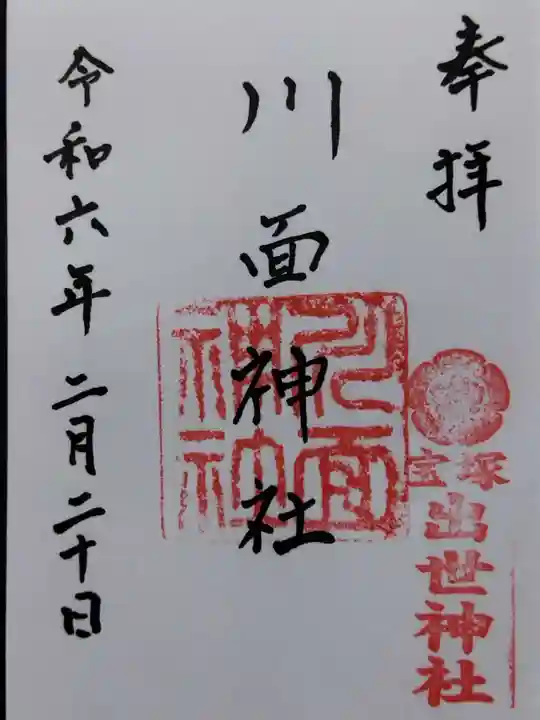 奉拝
宝塚
出世神社
川面神社
令和六年二月二十日